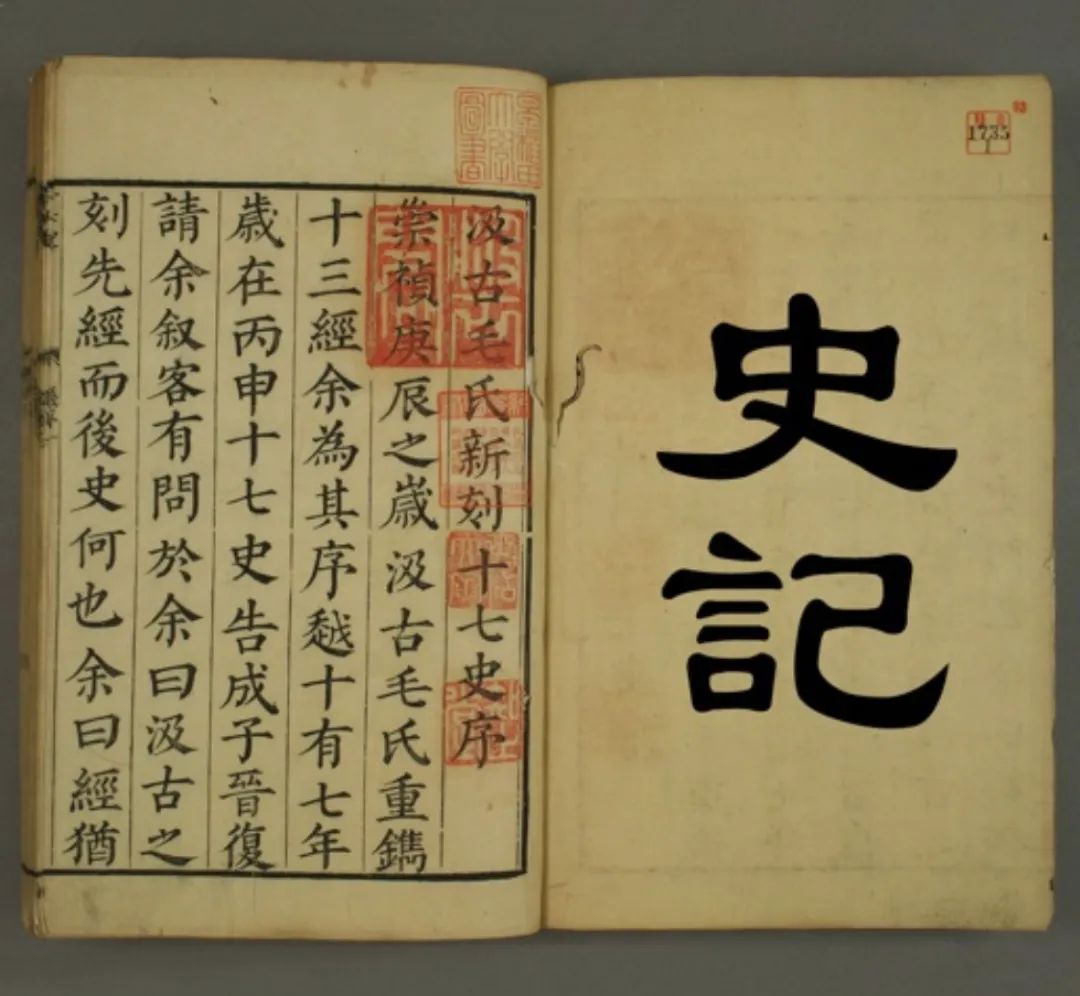 史記
1735
1
早稻田
大學
圖書
汲古毛氏新刻十七史序
崇禎庚辰之歲汲古毛氏重鐫
十三經余為其序越十有七年
歲在丙申十七史告成子晉復
請余叙客有問於余曰汲古之
刻先經而後史何也余曰經猶